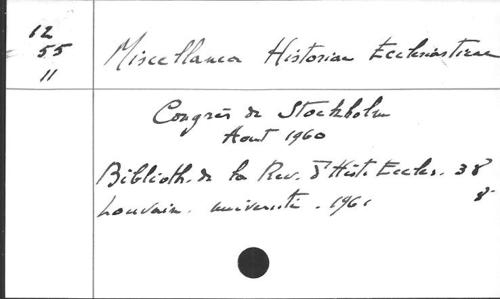 12
55
11
Miscellanea Historiae Ecclesiasticae
Congrès de Stockholm
Aout 1960
Biblioth. de la Rev. d'Hist. Eccles. 38
Louvain. université. 1961 8°